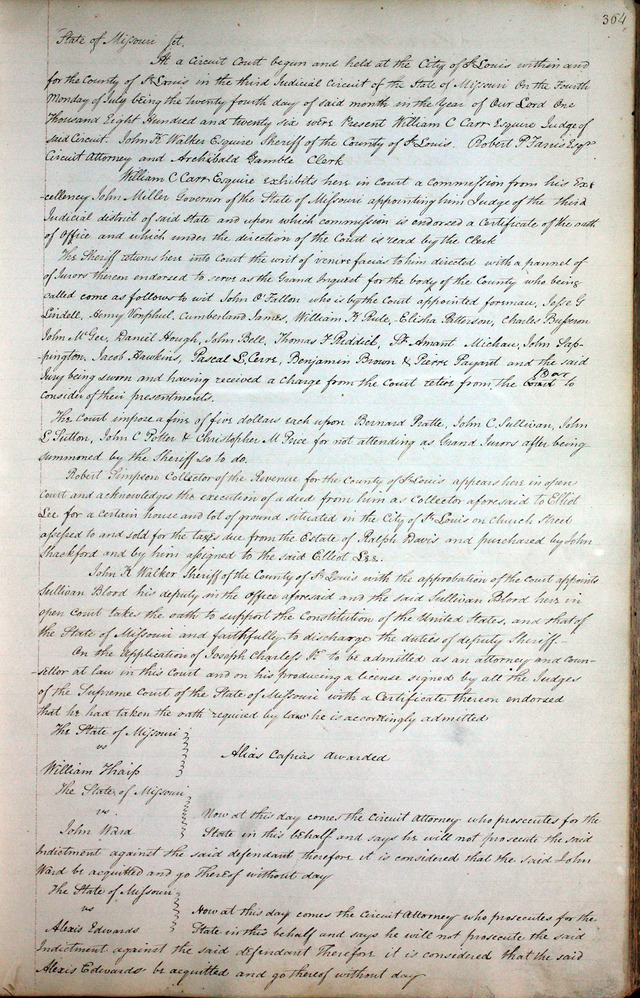 364
State of Missouri sct.
At a Circuit Court begun and held at the City of St Louis within and
for the County of St Louis in the third Judicial Circuit of the State of Missouri On the Fourth
Monday of July being the twenty fourth day of said month in the Year of Our Lord One
Thousand Eight Hundred and twenty six were Present William C Carr Esquire Judge of
said Circuit. John K Walker Esquire Sheriff of the County of St Louis. Robert P Farris Esqr
Circuit Attorney and Archibald Gamble Clerk
William C Carr Esquire exhibits here in Court a Commission from his Ex-
-cellency John Miller Governor of the State of Missouri appointing him Judge of the third
Judicial district of said State and upon which commission is endorsed a Certificate of the oath
of Office and which under the direction of the Court is read by the Clerk
The Sheriff returns here into Court the writ of venire facias to him directed with a pannel of
of Jurors thereon endorsed to serve as the Grand Inquest for the body of the County who being
called come as follows to wit John O'Fallon who is by the Court appointed foreman, Jesse G
Lindell, Henry Vonphul, Cumberland James, William K Rule, Elisha Patterson, Charles
John McGee, Daniel Hough, John Bell, Thomas F Reddick, St Amant Michau, John
Jacob Hawkins, Pascal L Cerre, Benjamin Brown & Pierre Payard and the said
Jury being sworn and having received a charge from the Court retire from the Bar to
consider of their presentments.
The Court impose a fine of five dollars each upon Bernard Pratte, John C Sullivan, John
L Sutton, John C Potter & Christopher M Price for not attending as Grand Jurors after being
summoned by the Sheriff so to do.
Robert Simpson Collector of the Revenue for the County of St Louis appears here in open
Court and acknowledges the execution of a deed from him as Collector aforesaid to Elliot
Lee for a certain house and lot of ground situated in the City of St Louis on Church Street
assessed to and sold for the taxes due from the Estate of Ralph Davis and purchased by John
Shackford and by him assigned to the said Elliot Lee.
John K Walker Sheriff of the County of St Louis with the approbation of the Court appoints
Sullivan Blood his deputy in the office aforesaid and the said Sullivan Blood here in
open Court takes the oath to support the Constitution of the United States, and that of
the State of Missouri and faithfully to discharge the duties of deputy Sheriff-
On the application of Joseph Charless Jr to be admitted as an attorney and coun-
sellor at law in this Court and on his producing a license signed by all the Judges
of the Supreme Court of the State of Missouri with a Certificate thereon endorsed
that he had taken the oath required by law he is accordingly admitted
The State of Missouri
vs
Alias Capias awarded
William
The State of Missouri
vs
Now at this day comes the Circuit Attorney who prosecutes for the
John Ward State in this behalf and says he will not prosecute the said
Indictment against the said defendant therefore it is considered that the said John
Ward be acquitted and go thereof without day
The State of Missouri
vs
Now at this day comes the Circuit Attorney who prosecutes for the
Alexis Edwards State in this behalf and says he will not prosecute the said
Indictment against the said defendant Therefore it is considered that the said
Alexis Edwards be acquitted and go thereof without day